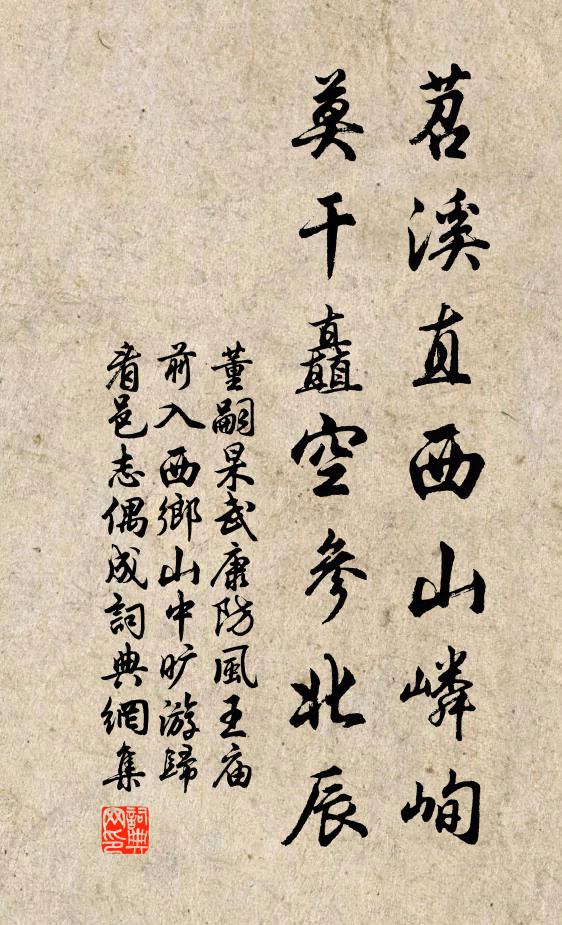 苕溪直西山嶙峋
莫干矗空參北辰
董嗣杲武康防風王庙
前入西鄉山中旷游歸
看邑志偶成詞典網集
詞典
网印